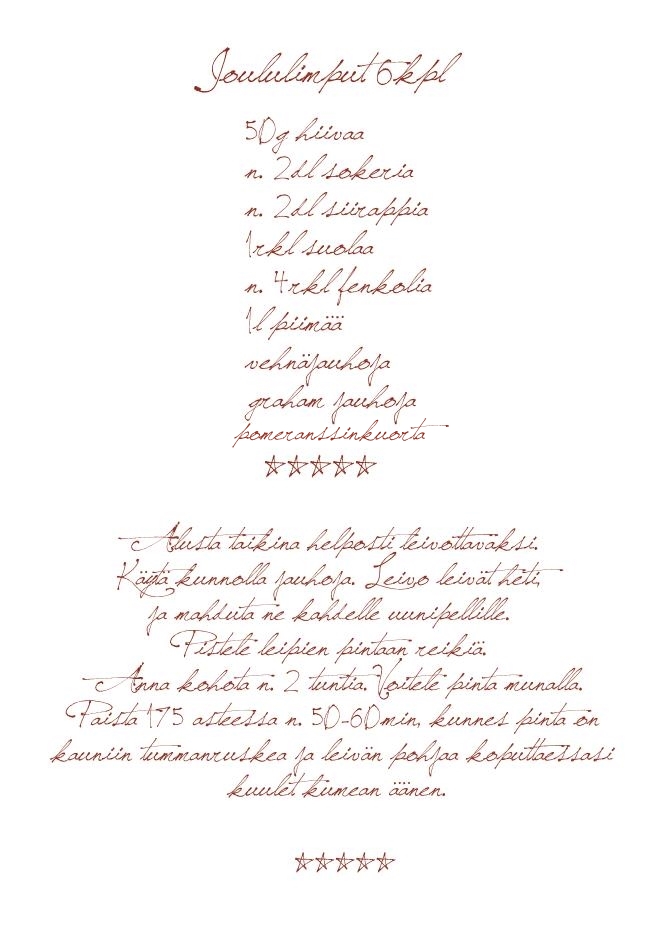 Joululimput 6kpl
50g hiivaa
n. 2dl sokeria
n. 2dl siirappia
1rkl suolaa
n. 4rkl fenkolia
1l piimää
vehnäjauhoja
graham jauhoja
pomeranssinkuorta
Alusta taikina helposti leivottavaksi.
Käytä kunnolla jauhoja. Leivo leivät heti,
ja mahduta ne kahdelle uunipellille.
Pistele leipien pintaan reikiä.
Anna kohota n. 2 tuntia. Voitele pinta munalla.
Paista 175 asteessa n. 50-60min, kunnes pinta on
kauniin tummanruskea ja leivän pohjaa koputtaessasi
kuulet kumean äänen.